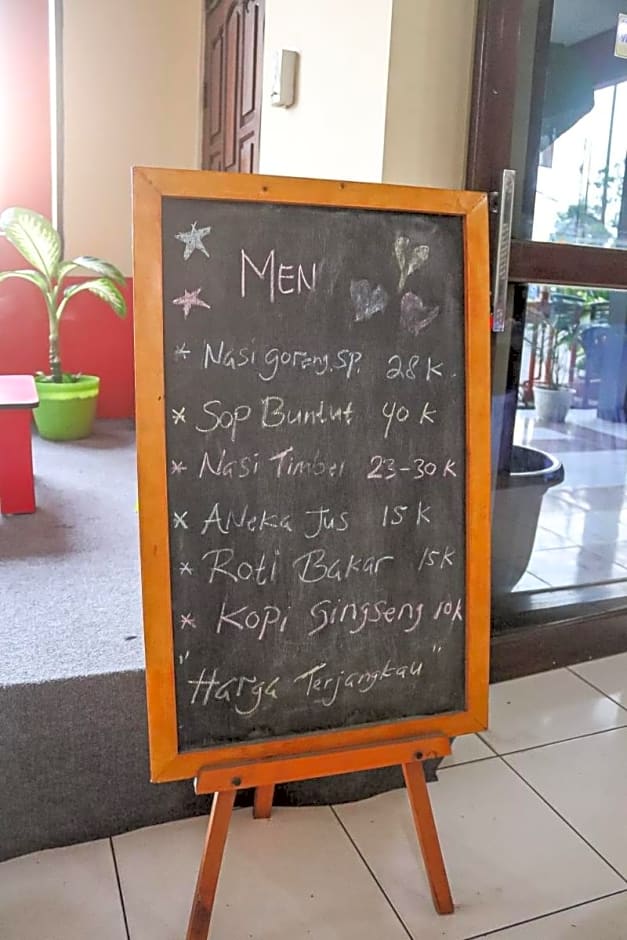 MEN
* Nasi goreng.SP. 28K.
* Sop Buntut 40K
* Nasi Timbel 23-30K
* ANeka Jus 15K
* Roti Bakar 15K
* Kopi gingseng 10k
"Harga Terjangkau"